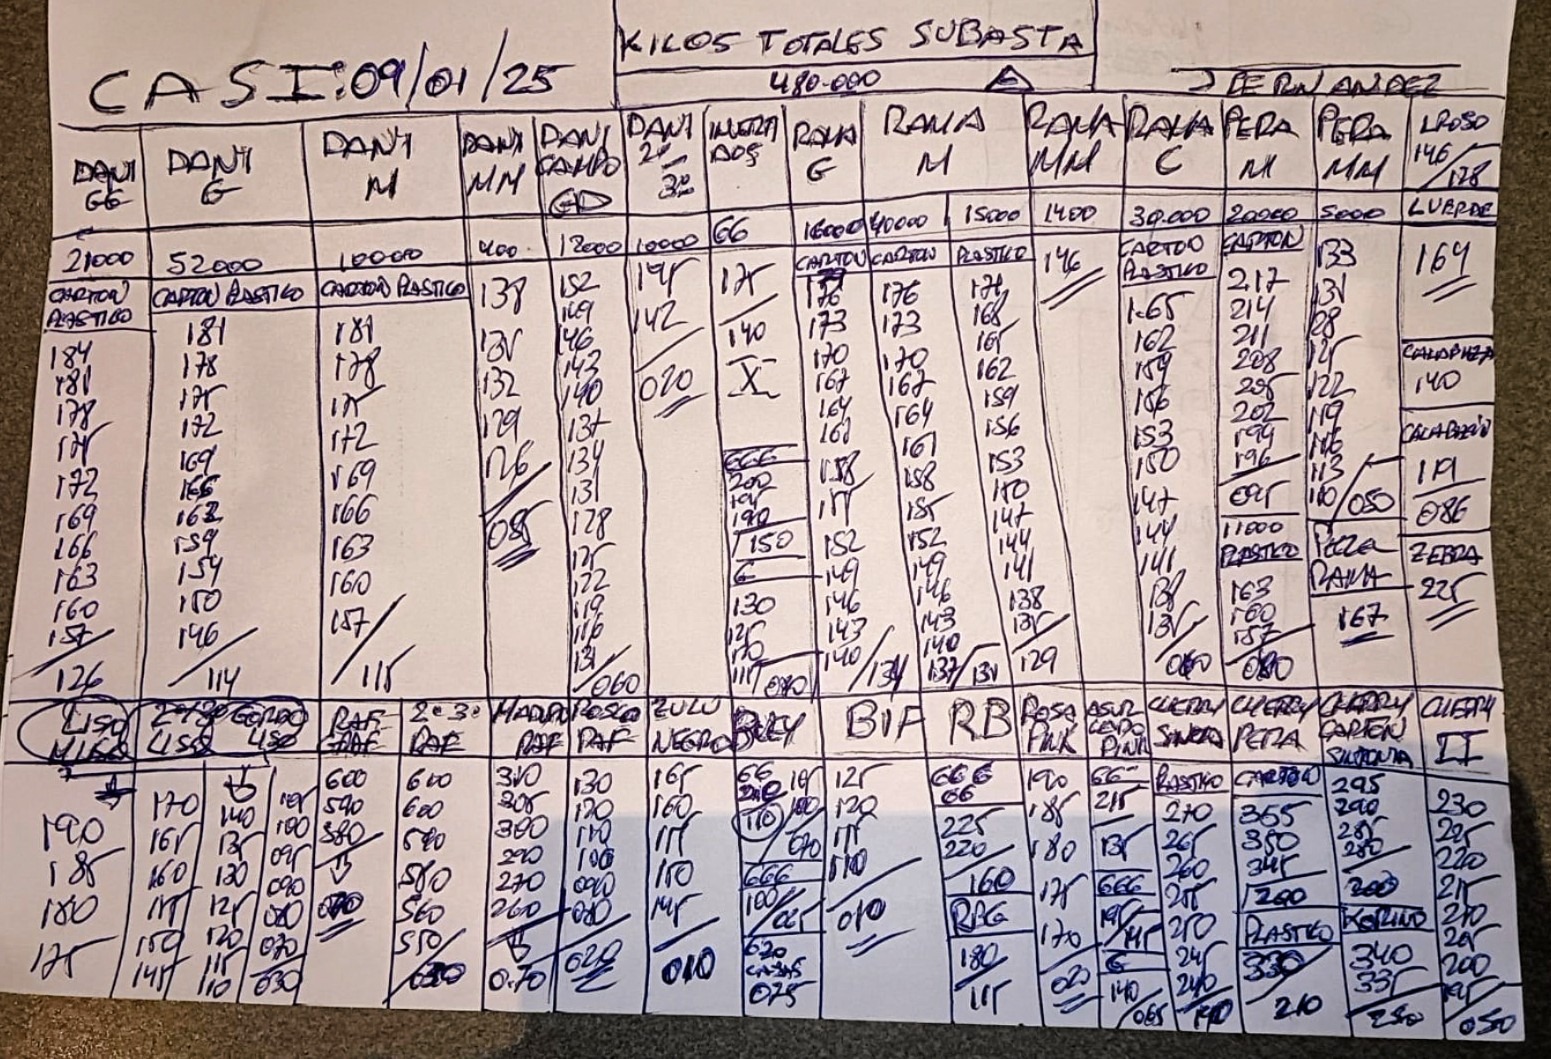 KILOS TOTALES SUBASTA
CASI: 09/01/25
480.000
J FERNANDEZ
DANI GG
DANI G
DANI M
DANI MM
DANI CAMPO GD
DANI 2ª 3ª
RAMA G
RAMA M
RAMA MM
RAMA C
PERA M
PERA MM
LROSO 146/128
21000
52000
10000
400
12000
10000
66
16000
40000
15000
1400
30.000
20000
5000
LVERDE
CARTON PLASTICO
184
181
178
175
172
169
166
163
160
157
126
CARTON PLASTICO
181
178
175
172
169
166
162
159
154
150
146
114
CARTON PLASTICO
181
178
175
172
169
166
163
160
157
115
138
135
132
129
126
085
152
149
146
143
140
137
134
131
128
125
122
119
116
131
060
145
142
020
175
140
X
666
200
195
190
150
G
130
125
120
115
080
CARTON
176
173
170
167
164
161
158
155
152
149
146
143
140
134
CARTON
176
173
170
167
164
161
158
155
152
149
146
143
140
137
131
PLASTICO
171
168
165
162
159
156
153
150
147
144
141
138
135
129
146
CARTON
PLASTICO
165
162
159
156
153
150
147
144
141
138
135
060
CARTON
217
214
211
208
205
202
199
196
095
11000
PLASTICO
163
160
157
080
133
131
128
125
122
119
116
113
110
050
PERA RAMA
167
164
CALABAZA
140
CALABACIN
119
086
ZEBRA
225
LISO
190
185
180
175
2ª 3ª LISO
170
165
160
155
150
145
GORDO LISO
140
135
130
125
120
115
110
105
100
095
090
080
070
030
RAF
600
590
580
070
2ª 3ª RAF
600
600
590
580
560
550
030
MADURO RAF
310
305
300
290
270
260
0.70
ROSCO RAF
130
120
110
100
090
080
020
ZULU NEGRO
165
160
155
150
145
010
BUEY
66
110
070
666
100
065
620
CAJAS
075
BIF
125
120
115
110
010
RB
666
66
225
220
160
RBG
180
115
ROSA PINK
190
185
180
175
170
020
ASURCADO PINK
66
215
135
666
195
145
G
140
065
CHERRY
PLASTICO
270
265
260
255
250
245
240
190
CHERRY PERA
CARTON
355
350
345
260
PLASTICO
330
210
CHERRY CARTON SINTONIA
295
290
285
280
200
KORINTO
340
335
250
CHERRY II
230
225
220
215
210
205
200
195
050